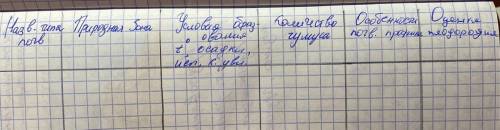 Назв. типа почв
Природная зона
Условия образ-
ования
t°, осадки,
исп. к. увл.
Количество
гумуса
Особенности
почв. профиля
Оценка
плодородия